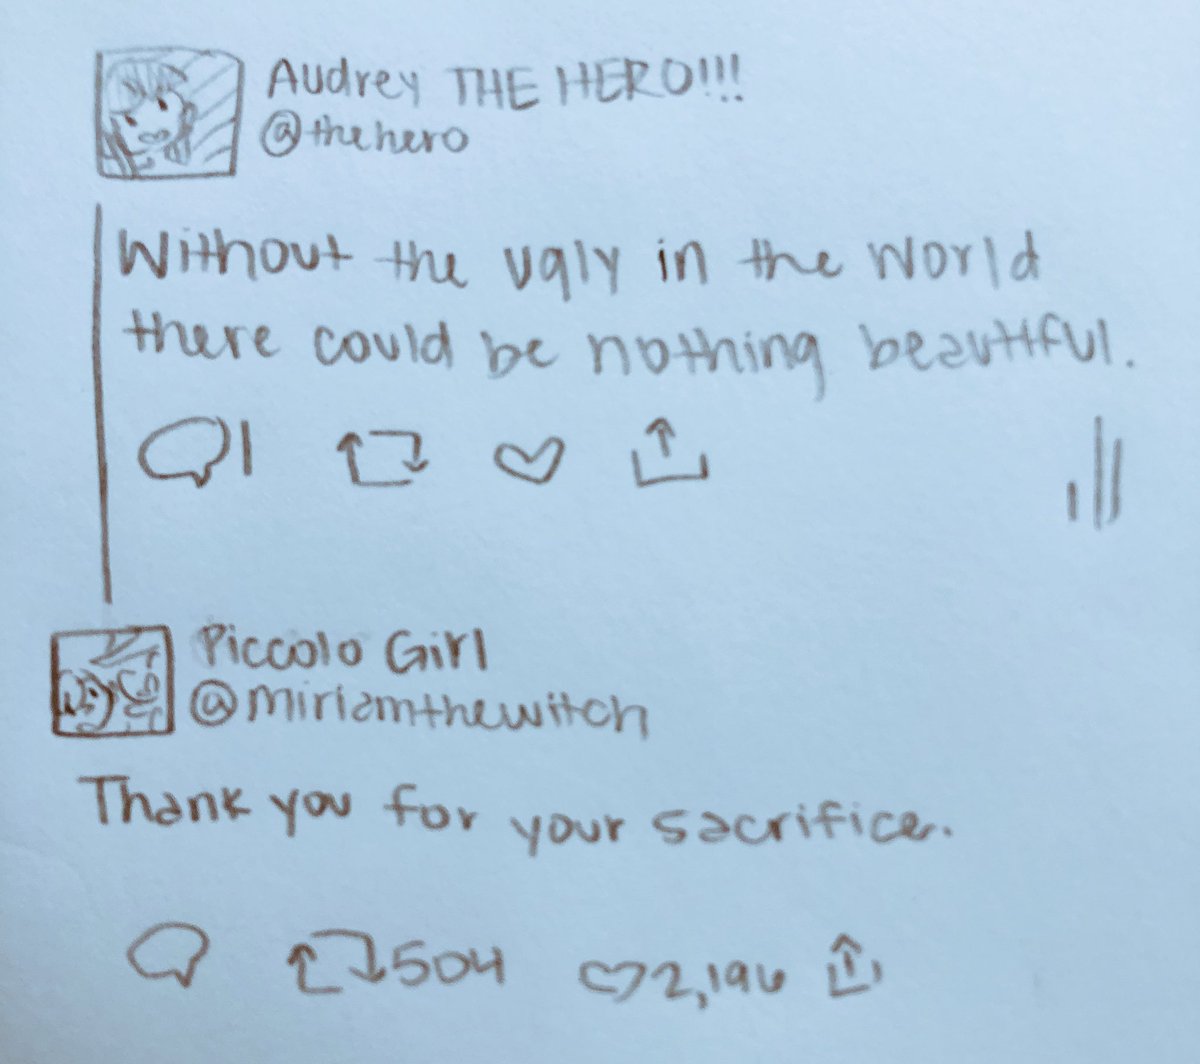 Audrey THE HERO!!!
@thehero
Without the ugly in the world
there could be nothing beautiful.
1
Piccolo Girl
@miriamthewitch
Thank you for your sacrifice.
504 2,196